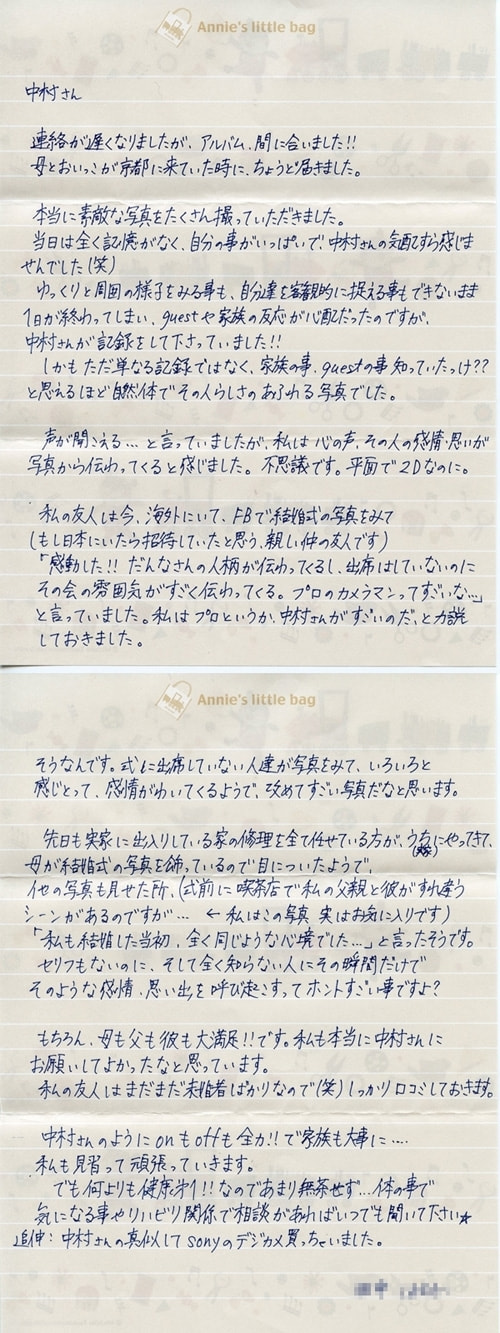 Annie's little bag
中村さん
連絡が遅くなりましたが、アルバム、間に合いました!!
母とおいっこが京都に来ていた時に、ちょうど届きました。
本当に素敵な写真をたくさん撮っていただきました。
当日は全く記憶がなく、自分の事がいっぱいで、中村さんの気配すら感じま
せんでした(笑)
ゆっくりと周囲の様子をみる事も、自分達を客観的に捉える事もできないまま
1日が終わってしまい、guestや家族の反応が心配だったのですが、
中村さんが記録をして下さっていました!!
しかもただ単なる記録ではなく、家族の事、guestの事知っていたっけ??
と思えるほど自然体でその人らしさのあふれる写真でした。
声が聞こえる…と言っていましたが、私は心の声、その人の感情・思いが
写真から伝わってくると感じました。不思議です。平面で2Dなのに。
私の友人は今、海外にいて、FBで結婚式の写真をみて
(もし日本にいたら招待していたと思う、親しい仲の友人です)
「感動した!!だんなさんの人柄が伝わってくるし、出席はしていないのに
その会の雰囲気がすごく伝わってくる。プロのカメラマンってすごいな…」
と言っていました。私はプロというか、中村さんがすごいのだ、と力説
しておきました。
Annie's little bag
そうなんです。式に出席していない人達が写真をみて、いろいろと
感じとって、感情がわいてくるようで、改めてすごい写真だなと思います。
先日も実家に出入りしている家の修理を全て任せている方が、うちにやってきて、
(実家)
母が結婚式の写真を飾っているので目についたようで、
他の写真も見せた所、(式前に喫茶店で私の父親と彼がすれ違う
シーンがあるのですが… ← 私はこの写真 実はお気に入りです)
「私も結婚した当初、全く同じような心境でした…」と言ったそうです。
セリフもないのに、そして全く知らない人にその瞬間だけで
そのような感情、思い出を呼び起こすってホントすごい事ですよ?
もちろん、母も父も彼も大満足!!です。私も本当に中村さんに
お願いしてよかったなと思っています。
私の友人はまだまだ未婚者ばかりなので(笑)しっかり口コミしておきます。
中村さんのようにonもoffも全力!!で家族も大事に‥‥
私も見習って頑張っていきます。
でも何よりも健康第1!!なのであまり無茶せず…体の事で
気になる事やリハビリ関係で相談があればいつでも聞いて下さい★
追伸:中村さんの真似してsonyのデジカメ買っちゃいました。